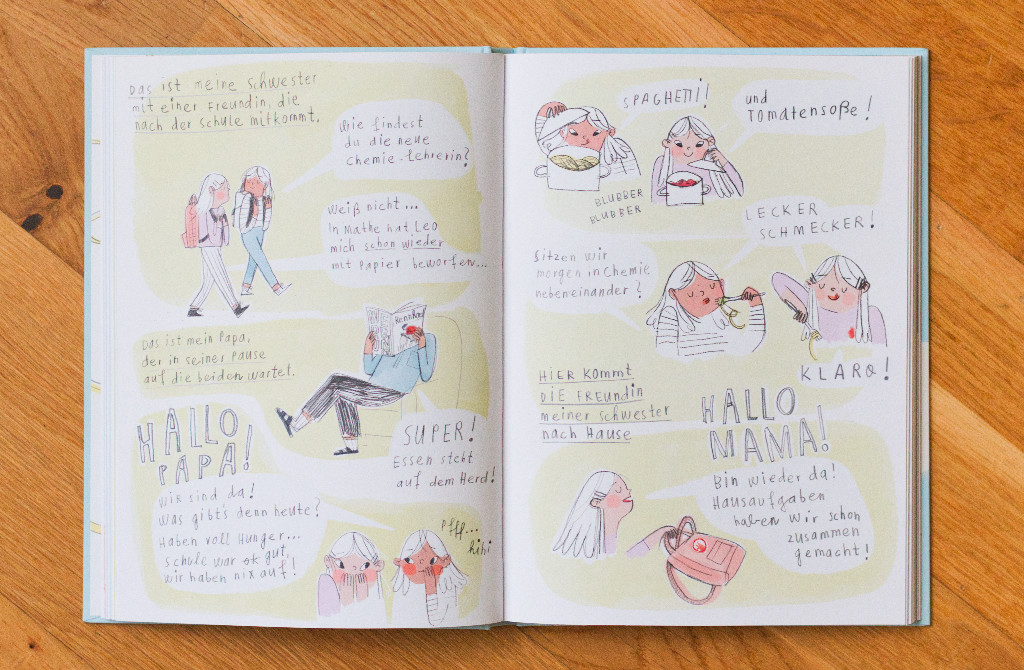 Das ist meine Schwester
mit einer Freundin, die
nach der Schule mitkommt.
Wie findest
du die neue
Chemie-Lehrerin?
Weiß nicht...
In Mathe hat Leo
mich schon wieder
mit Papier beworfen...
Das ist mein Papa,
der in seiner Pause
auf die beiden wartet.
HALLO
PAPA!
SUPER!
Essen steht
auf dem Herd!
Wir sind da!
Was gibt's denn heute?
Haben voll Hunger...
Schule war ok gut,
wir haben nix auf!
Pfff...
hihi
SPAGHETTI!
und
Tomatensoße!
BLUBBER
BLUBBER
LECKER
SCHMECKER!
Sitzen wir
morgen in Chemie
nebeneinander?
KLARO!
Hier kommt
die Freundin
meiner Schwester
nach Hause
HALLO
MAMA!
Bin wieder da!
Hausaufgaben
haben wir schon
zusammen
gemacht!